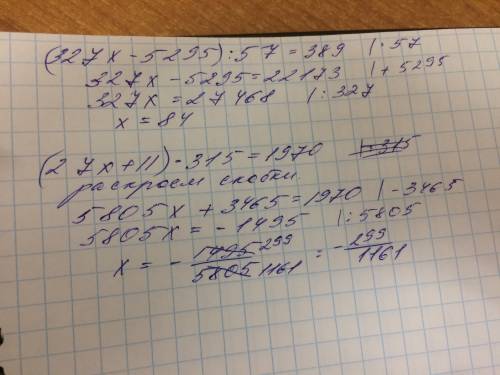 (327x - 5295) : 57 = 389 | · 57
327x - 5295 = 22173 | + 5295
327x = 27468 | : 327
x = 84
(27x + 11) · 315 = 1970 | : 315
раскроем скобки
5805x + 3465 = 1970 | - 3465
5805x = - 1495 | : 5805
x = - 1495 299 / 5805 1161 = - 299/1161